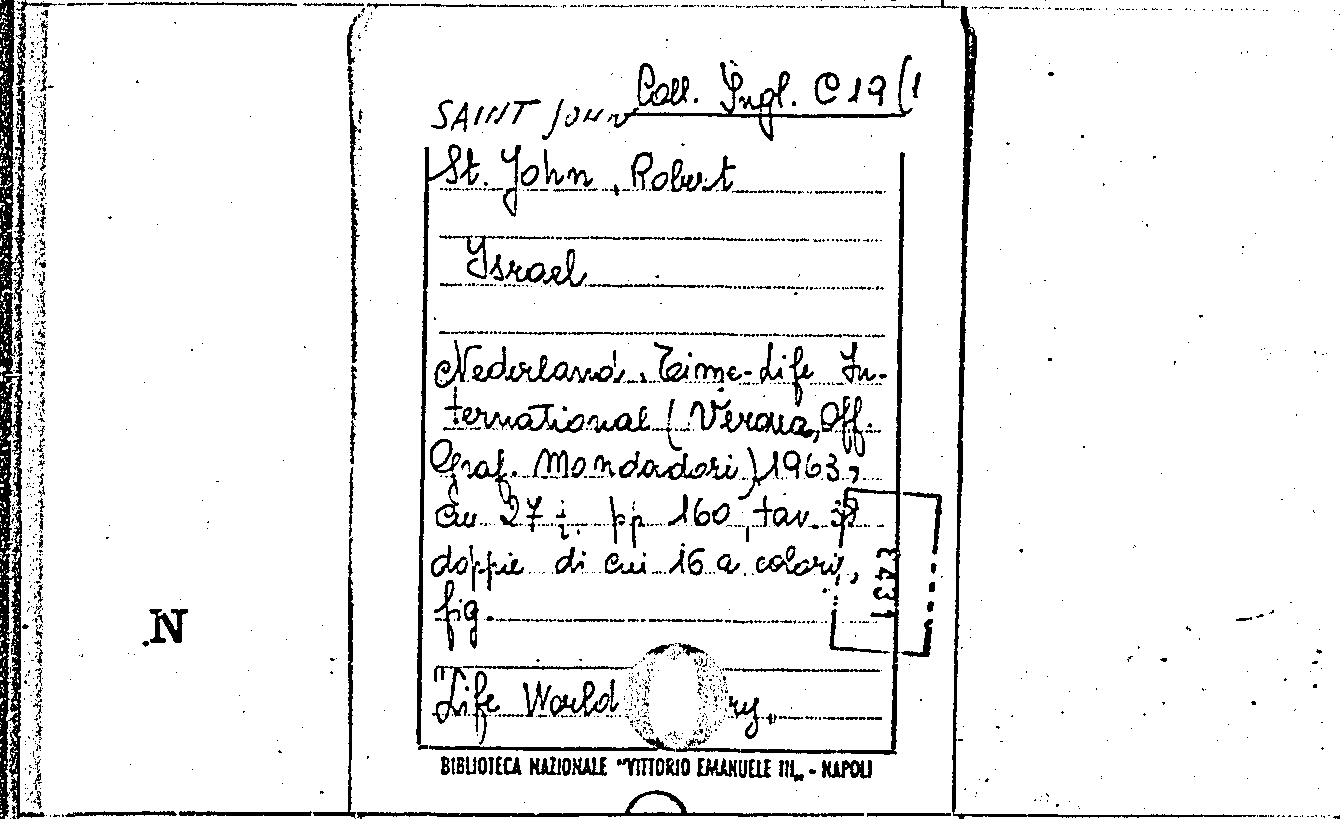 Coll. Ingl. C 19 (1
SAINT JOHN
St. John, Robert
Israel
Nederland, Time-Life In-
ternational (Verona, Off.
Graf. Mondadori) 1963,
cm 27 ½ pp 160, tav.
doppie di cui 16 a colori,
fig.
"Life World ry„
N
BIBLIOTECA NAZIONALE "VITTORIO EMANUELE III„ - NAPOLI